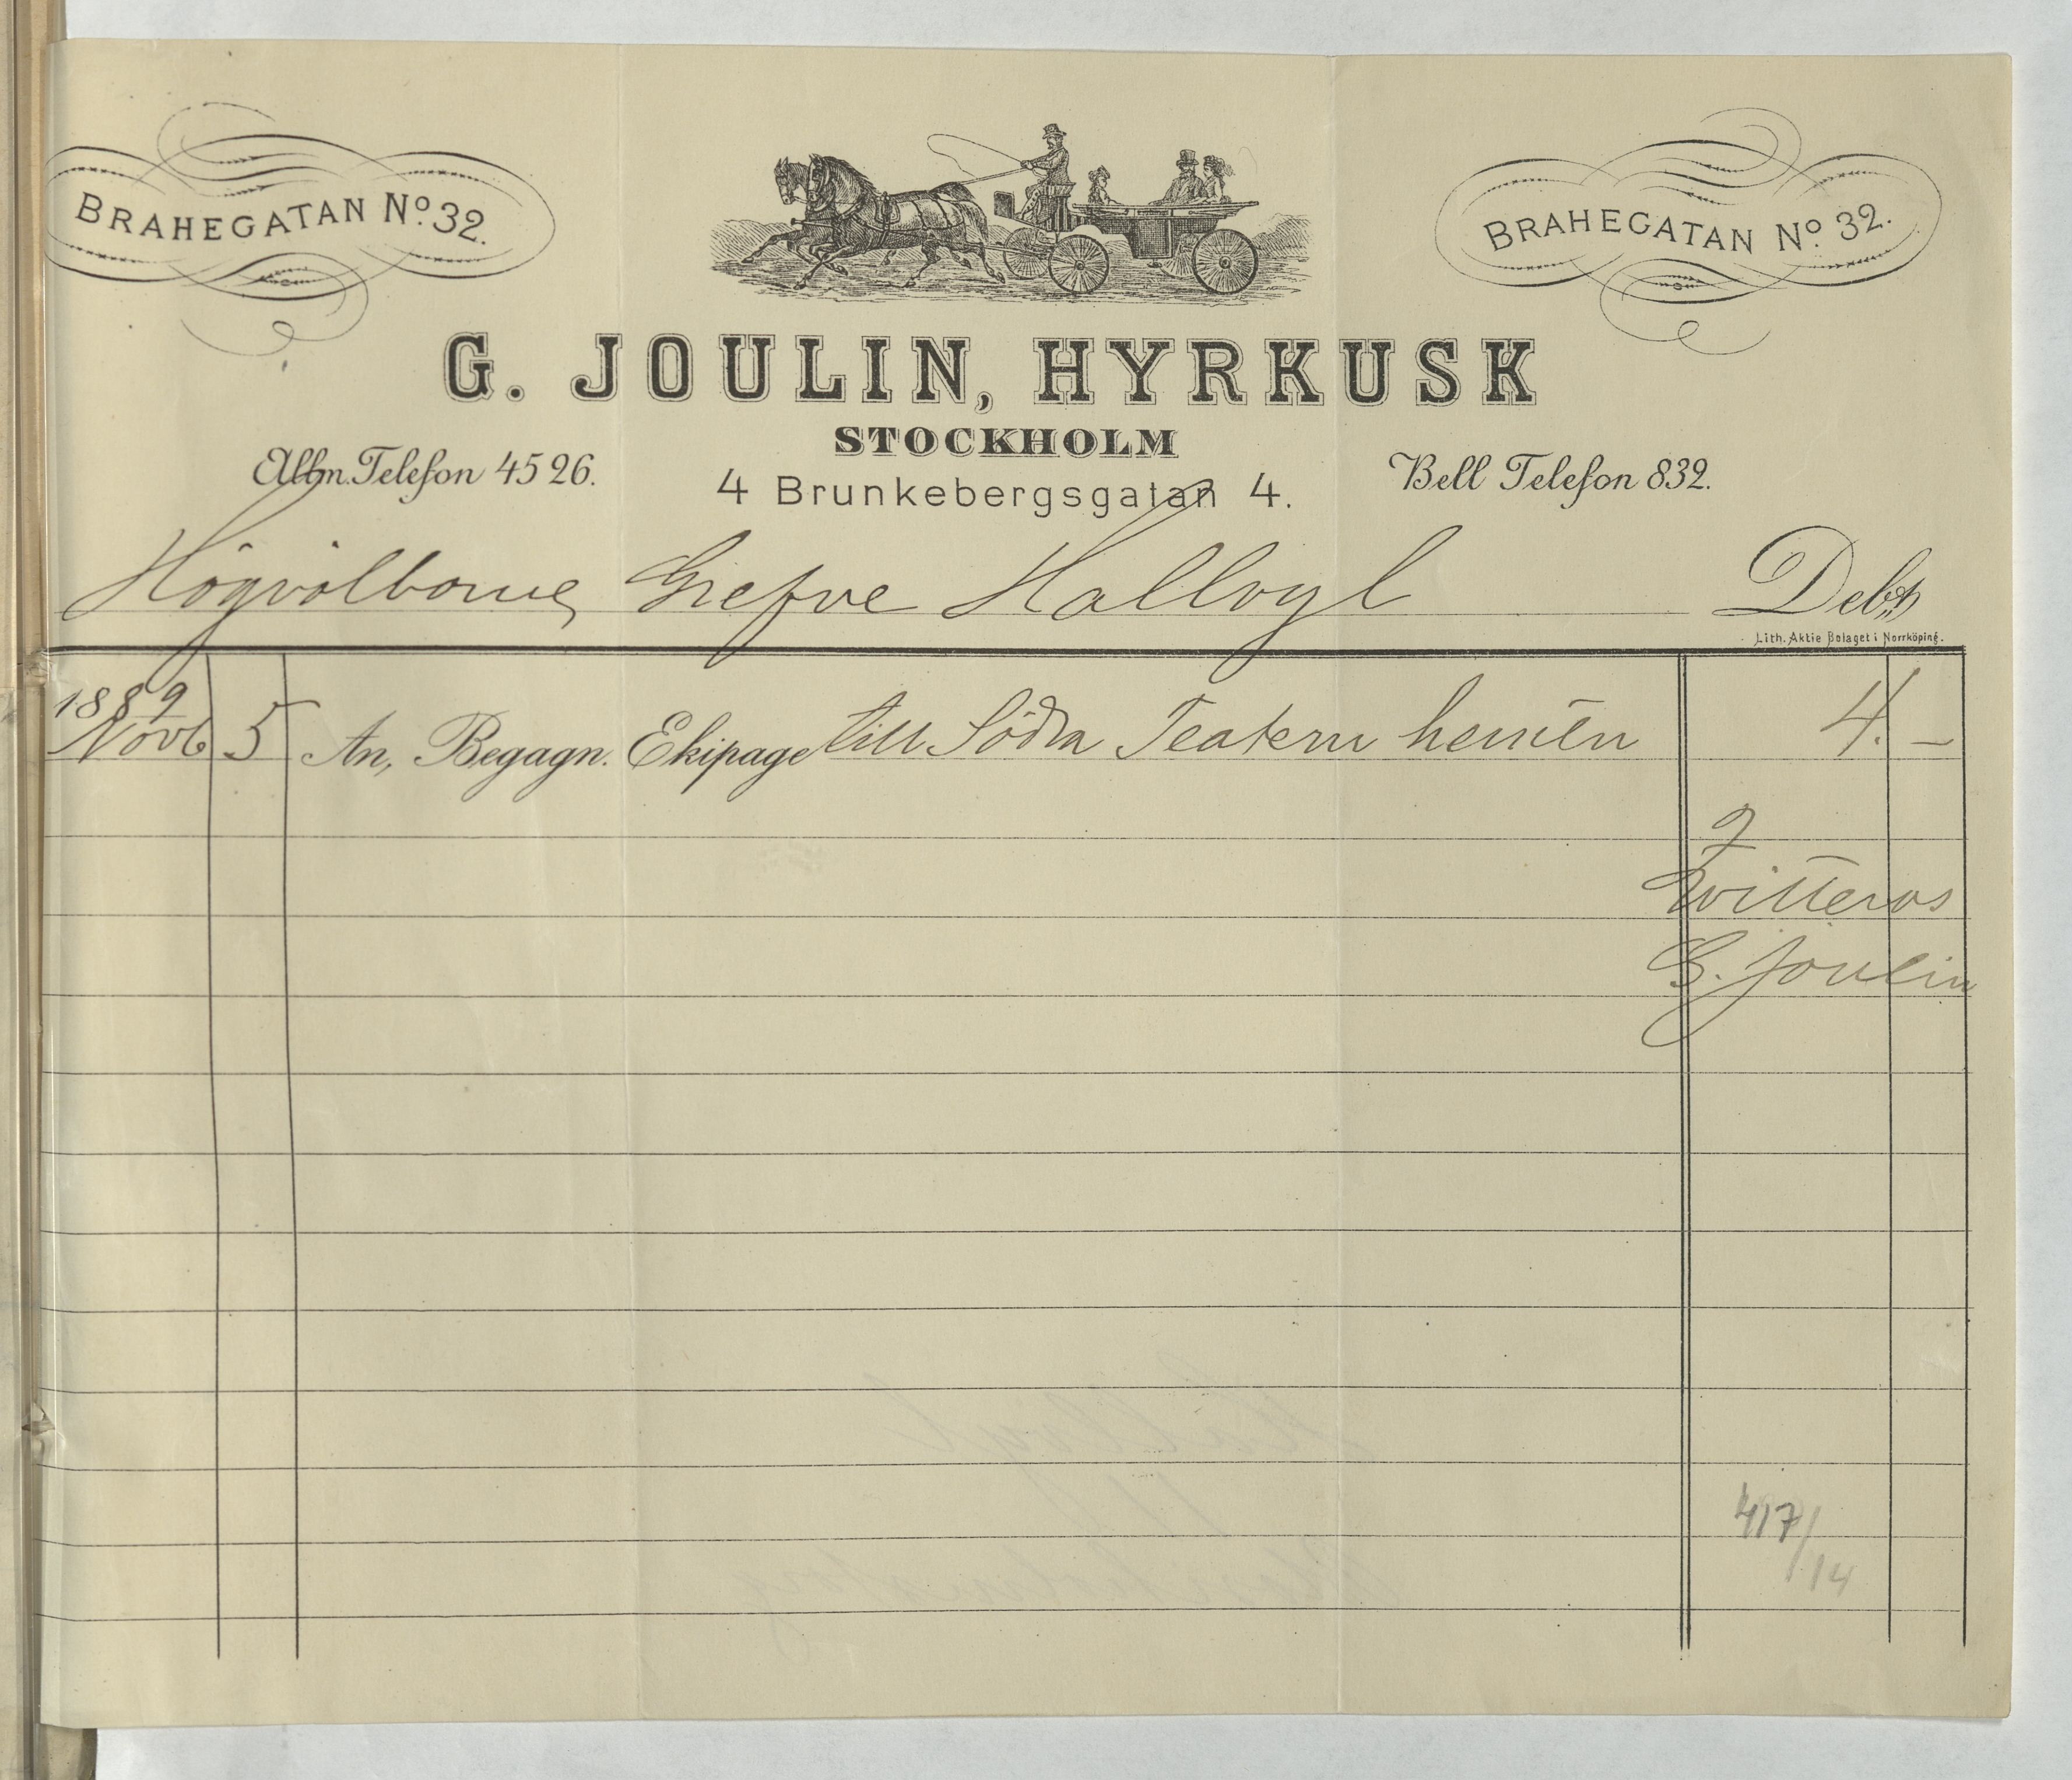 BRAHEGATAN No. 32.
BRAHEGATAN No. 32.
G. JOULIN, HYRKUSK
STOCKHOLM
Allm. Telefon 4526.
4 Brunkebergsgatan 4.
Bell Telefon 832.
Högvälborne Grefve Hallvyl
Debet
Lith. Aktie Bolaget i Norrköping.
1889
Novb 5 An, Begagn. Ekipage till Södra Teatern hemten 4. —
Qvitteras
G. Joulin
417/14